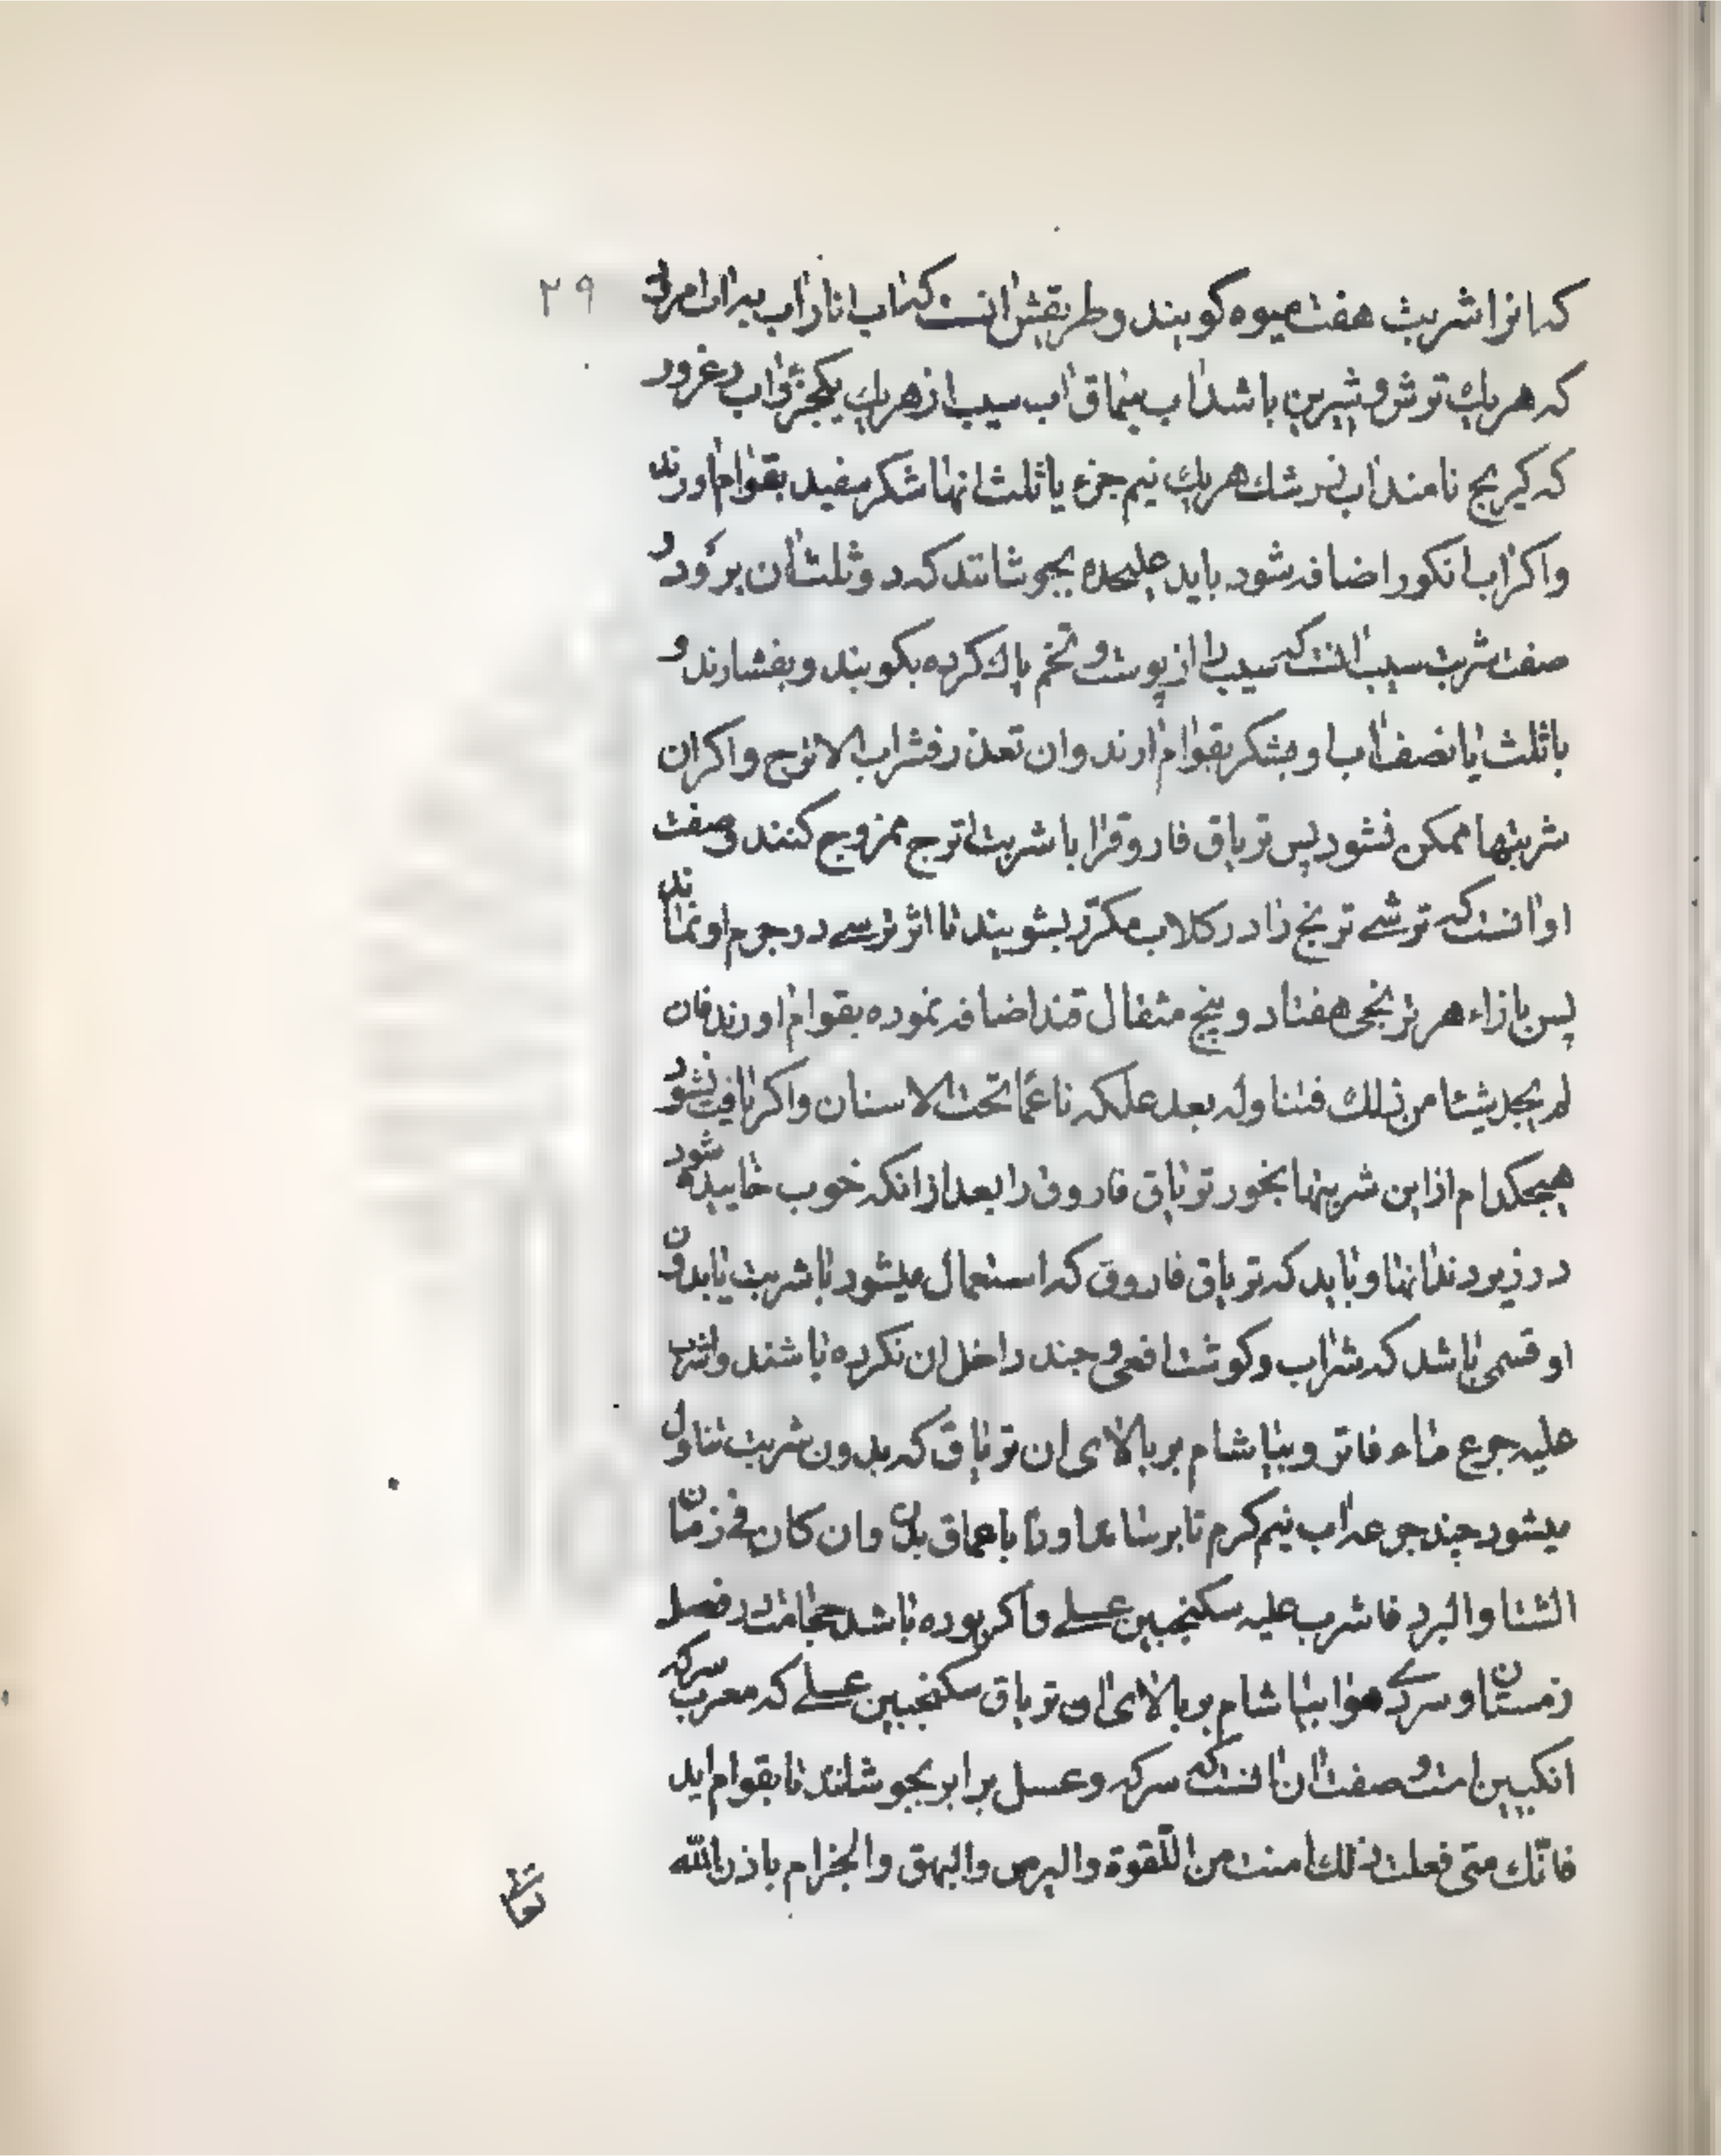 ۲۹
که انرا شربت هفت میوه کویند و طریقش انست که اب انار اب
که هریك ترش و شیرین باشد اب سماق اب سیب از هریك یکجزؤ اب دغرور
که کیریج نامند اب زرشك هریك نیم جزء یا ثلث انها شکر سفید بقوام اورند
واکر اب انکور اضافه شود باید علیحده بجوشانند که دو ثلث ان برود و
صفت شربت سیب انست که سیب را از پوست و تخم پاك کرده بکویند و بفشارند و
با ثلث یا نصف اب او بشکر بقوام ارند وان تعذر فشراب الاترج واکر ان
شربتها ممکن نشود پس تریاق فاروقرا با شربت اترج ممزوج کنند وصفت
او انست که ترشے ترنج را در کلاب مکرّر بشویند تا اثر ترسے در جرم او نماند
پس بازاء هر ترنجی هفتاد و پنج مثقال قند اضافه نموده بقوام اورند فان
لم یجد شیئا من ذلك فتناوله بعد علکه ناعمًا تحت الاسنان واکر یافت نشود
هیچکدام از این شربتها بخور تریاق فاروق را بعد از انکه خوب خاییده شود
در زیر دندانها و باید که تریاق فاروق که استعمال میشود با شربت یا بدون
او قسمی باشد که شراب وکوشت افعی و جند داخل ان نکرده باشند واشرب
علیه جرع ماء فاتر و بیاشام بر بالای ان تریاق که بدون شربت تناول
میشود چند جرعه اب نیم کرم تا برساند او را باعماق بدن وان کان فے زمان
الشتا والبرد فاشرب علیه سکنجبین عسلے واکر بوده باشد حجامت در فصل
زمستان و سردے هوا بیاشام بر بالای ان تریاق سکنجبین عسلے که معرب سرکه
انکبین است و صفت ان انست که سرکه و عسل برابر بجوشانند تا بقوام اید
فانّك متی فعلت ذلك امنت من اللّقوة والبرص والبهق والجذام باذن الله
تعالی